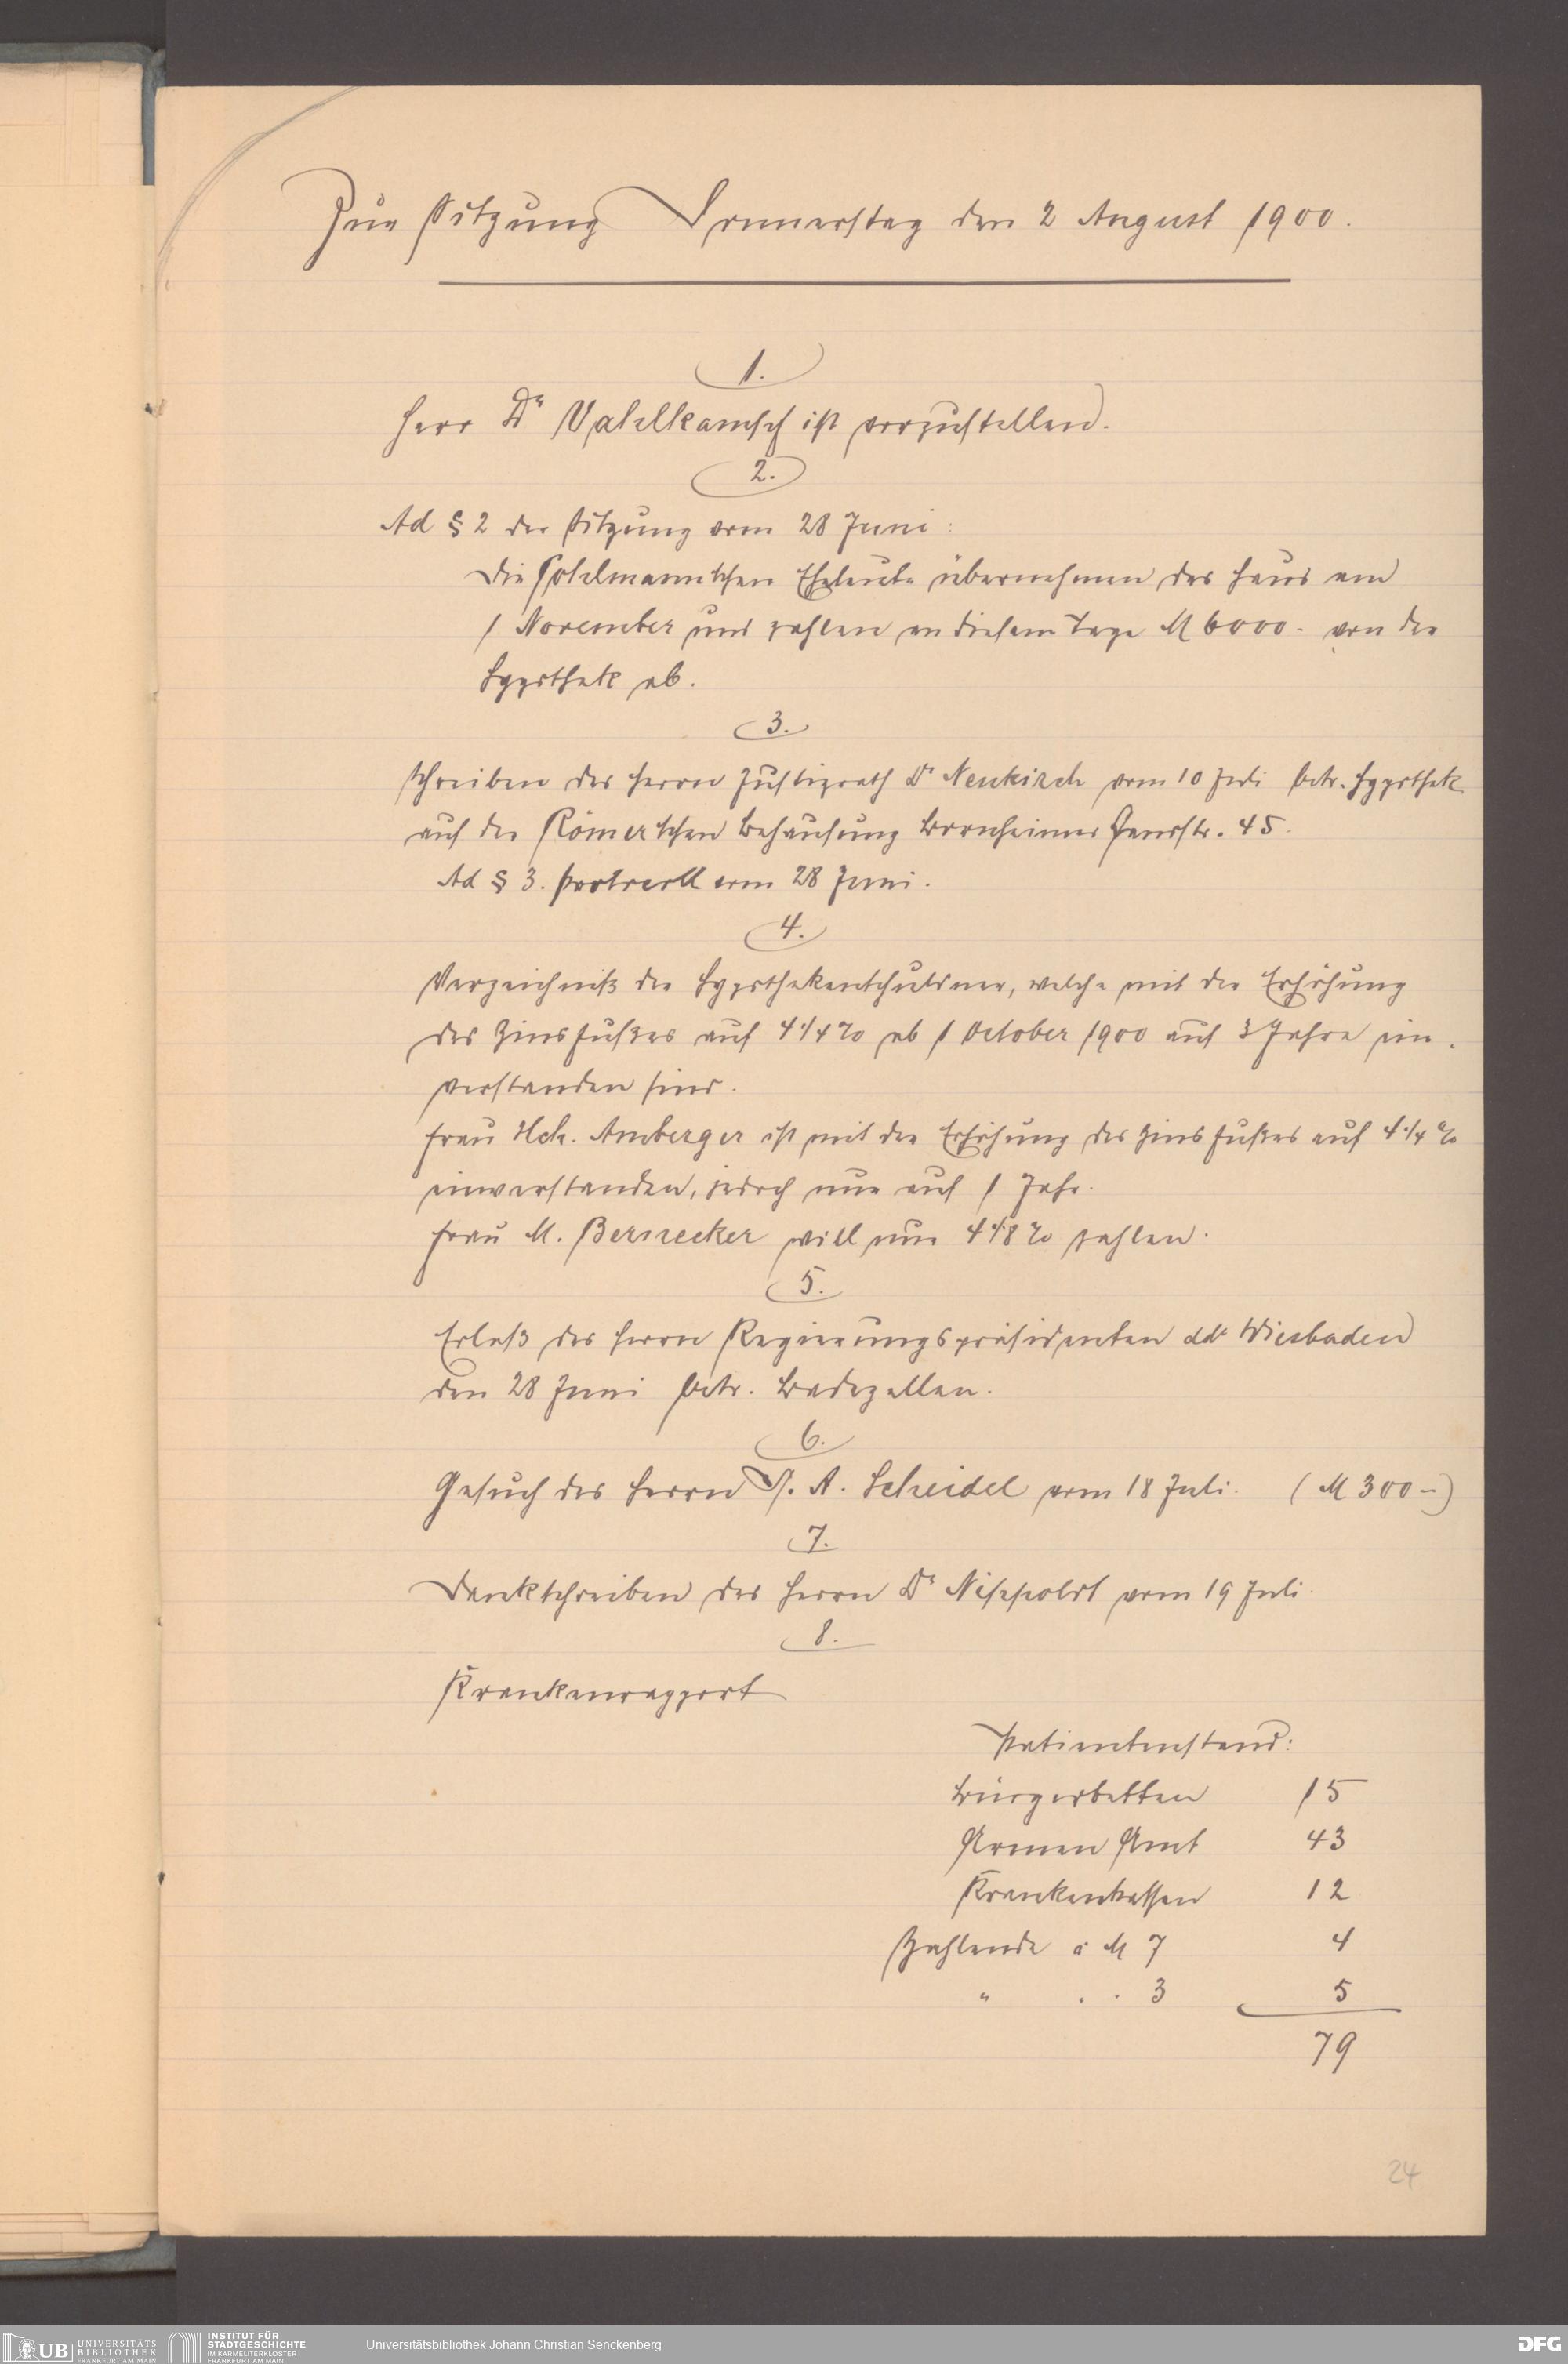 Zur Sitzung Donnerstag den 2 August 1900.
1.
Herr Dr Vahlkampf ist vorzustellen.
2.
Ad § 2 der Sitzung vom 28 Juni:
Die Pohlmann'schen Eheleute übernehmen das Haus am
1 November und zahlen an diesem Tage M 6000.- von der
Hypothek ab.
3.
Schreiben des Herrn Justizrath Dr Neukirch vom 10 Juli betr. Hypothek
auf der Römer'schen Behausung Bornheimer Landstr. 45.
Ad § 3. Protocoll vom 28 Juni.
4.
Verzeichniß der Hypothekenschuldner, welche mit der Erhöhung
des Zinsfußes auf 4 1/4 % ab 1 October 1900 auf 3 Jahre ein-
verstanden sind.
Frau Hch. Amberger ist mit der Erhöhung des Zinsfußes auf 4 1/4 %
einverstanden, jedoch nur auf 1 Jahr.
Frau M. Bernecker will nur 4 1/8 % zahlen.
5.
Erlaß des Herrn Regierungspräsidenten dd. Wiesbaden
den 28 Juni betr. Badezellen.
6.
Gesuch des Herrn A. Scheidel vom 18 Juli. (M 300.-)
7.
Dankschreiben des Herrn Dr Nippoldt vom 19 Juli.
8.
Krankenrapport
Patientenstand:
Bürgerbetten 15
Armen Amt 43
Krankenkassen 12
Zahlende à M 7 4
" . . 3 5
79
24
UB UNIVERSITÄTS BIBLIOTHEK FRANKFURT AM MAIN
INSTITUT FÜR STADTGESCHICHTE IM KARMELITERKLOSTER FRANKFURT AM MAIN
Universitätsbibliothek Johann Christian Senckenberg
DFG